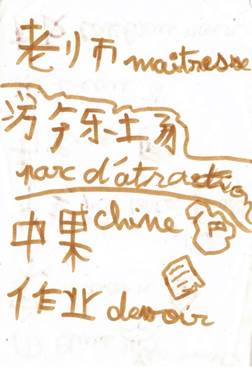 老师 maitresse
游乐场
parc d'atractio
中果 chine
作业 devoir